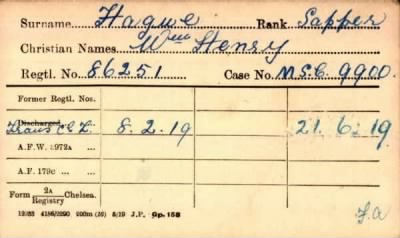 Surname Hague Rank Sapper
Christian Names Wm Henry
Regtl. No. 86251 Case No. M.S.C. 9900.
Former Regtl. Nos.
Discharged
Trans 8.2.19 21.6.19
A.F.W. 3972A ...
A.F. 179c ...
Form 2A Registry Chelsea.
200m (16) 5/19 J.P. Gp. 158
F.A